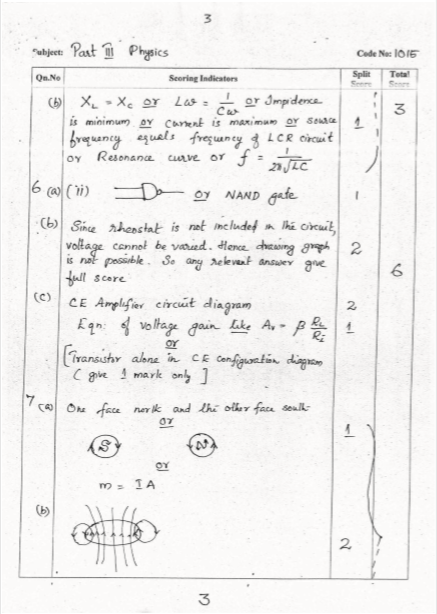 3
Subject: Part III Physics Code No: 1015
Qn.No Scoring Indicators Split Score Total Score
(b) X_L = X_C or Lω = 1/Cω or Impedence
is minimum or Current is maximum or source 1 3
frequency equals frequency of LCR circuit
or Resonance curve or f = 1/2π√LC
6 (a) (ii) or NAND gate 1
(b) Since rheostat is not included in the circuit,
voltage cannot be varied. Hence drawing graph 2
is not possible. So any relevant answer give
full score 6
(C) CE Amplifier circuit diagram 2
Eqn: of voltage gain like Av = β RL/Ri 1
or
[Transistor alone in CE configuration diagram
( give 1 mark only ]
7 (a) One face north and the other face south
or 1
S N
or
m = IA
(b)
2
3